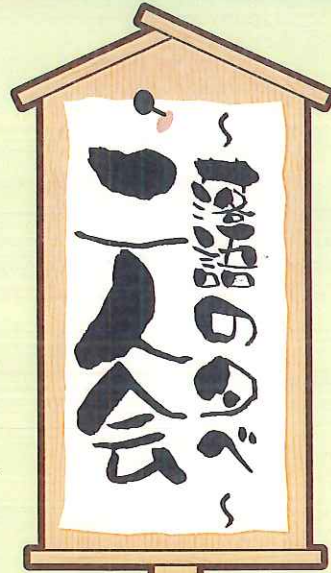 ～落語の夕べ～
二人会